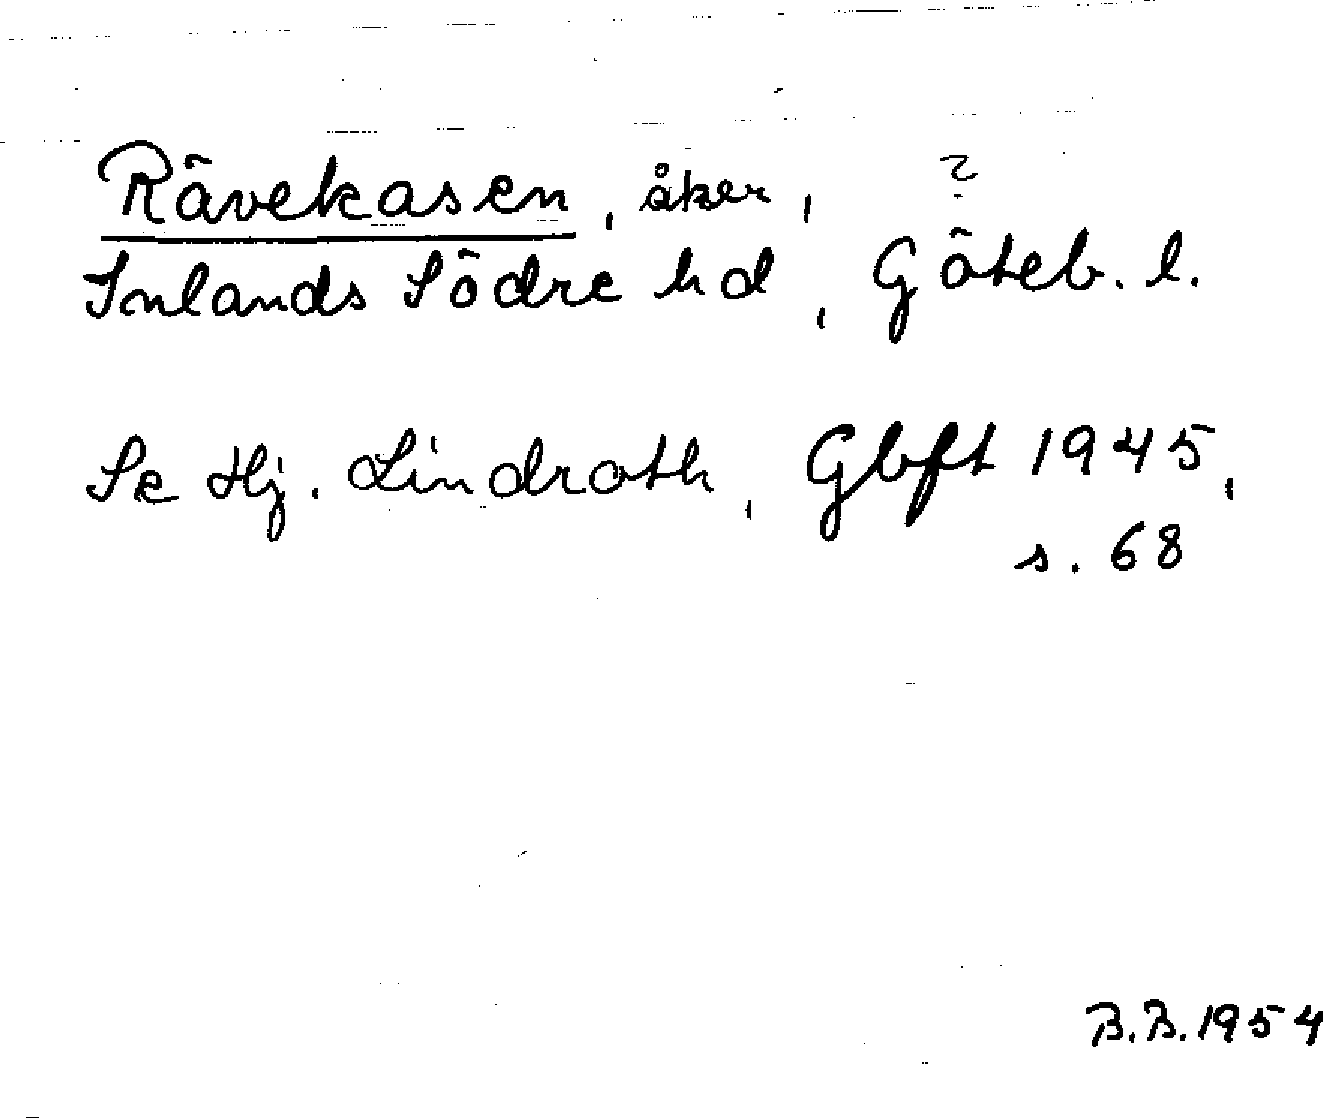 Rävekasen, åker, ?
Inlands Södre hd, Göteb. l.
Se Hj. Lindroth, Gbft 1945,
s. 68
B.B. 1954